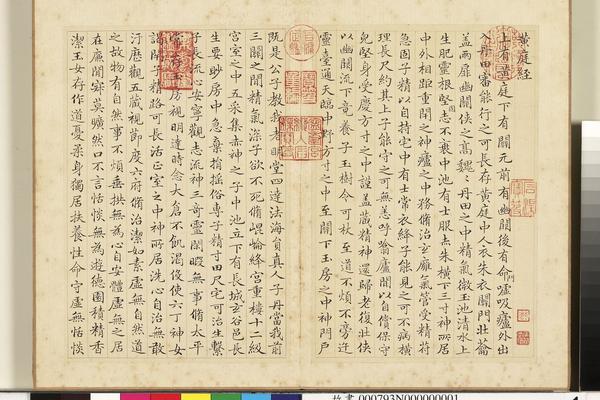 黃庭經
上有黃庭下有關元前有幽闕後有命噓吸廬外出
入丹田審能行之可長存黃庭中人衣朱衣關門壯籥
蓋兩扉幽闕俠之高魏〻丹田之中精氣微玉池清水上
生肥靈根堅志不衰中池有士服赤朱橫下三寸神所居
中外相距重閉之神廬之中務脩治玄廱氣管受精符
急固子精以自持宅中有士常衣絳子能見之可不病橫
理長尺約其上子能守之可無恙呼噏廬間以自償保守
皃堅身受慶方寸之中謹蓋藏精神還歸老復壯俠
以幽闕流下竟養子玉樹令可杖至道不煩不旁迕
靈臺通天臨中野方寸之中至關下玉房之中神門戶
既是公子教我者明堂四達法海員真人子丹當我前
三關之間精氣深子欲不死脩崐崘絳宮重樓十二級
宮室之中五采集赤神之子中池立下有長城玄谷邑長
生要眇房中急棄捐搖俗專子精寸田尺宅可治生繫
子長流心安寧觀志流神三奇靈閑暇無事脩太平
常存玉房視明達時念大倉不飢渴役使六丁神女
謁閉子精路可長活正室之中神所居洗心自治無敢
汙歷觀五藏視節度六府脩治潔如素虛無自然道
之故物有自然事不煩垂拱無為心自安體虛無之居
在廉間寂莫曠然口不言恬惔無為遊德園積精香
潔玉女存作道憂柔身獨居扶養性命守虛無恬惔
故畫 000793N000000001